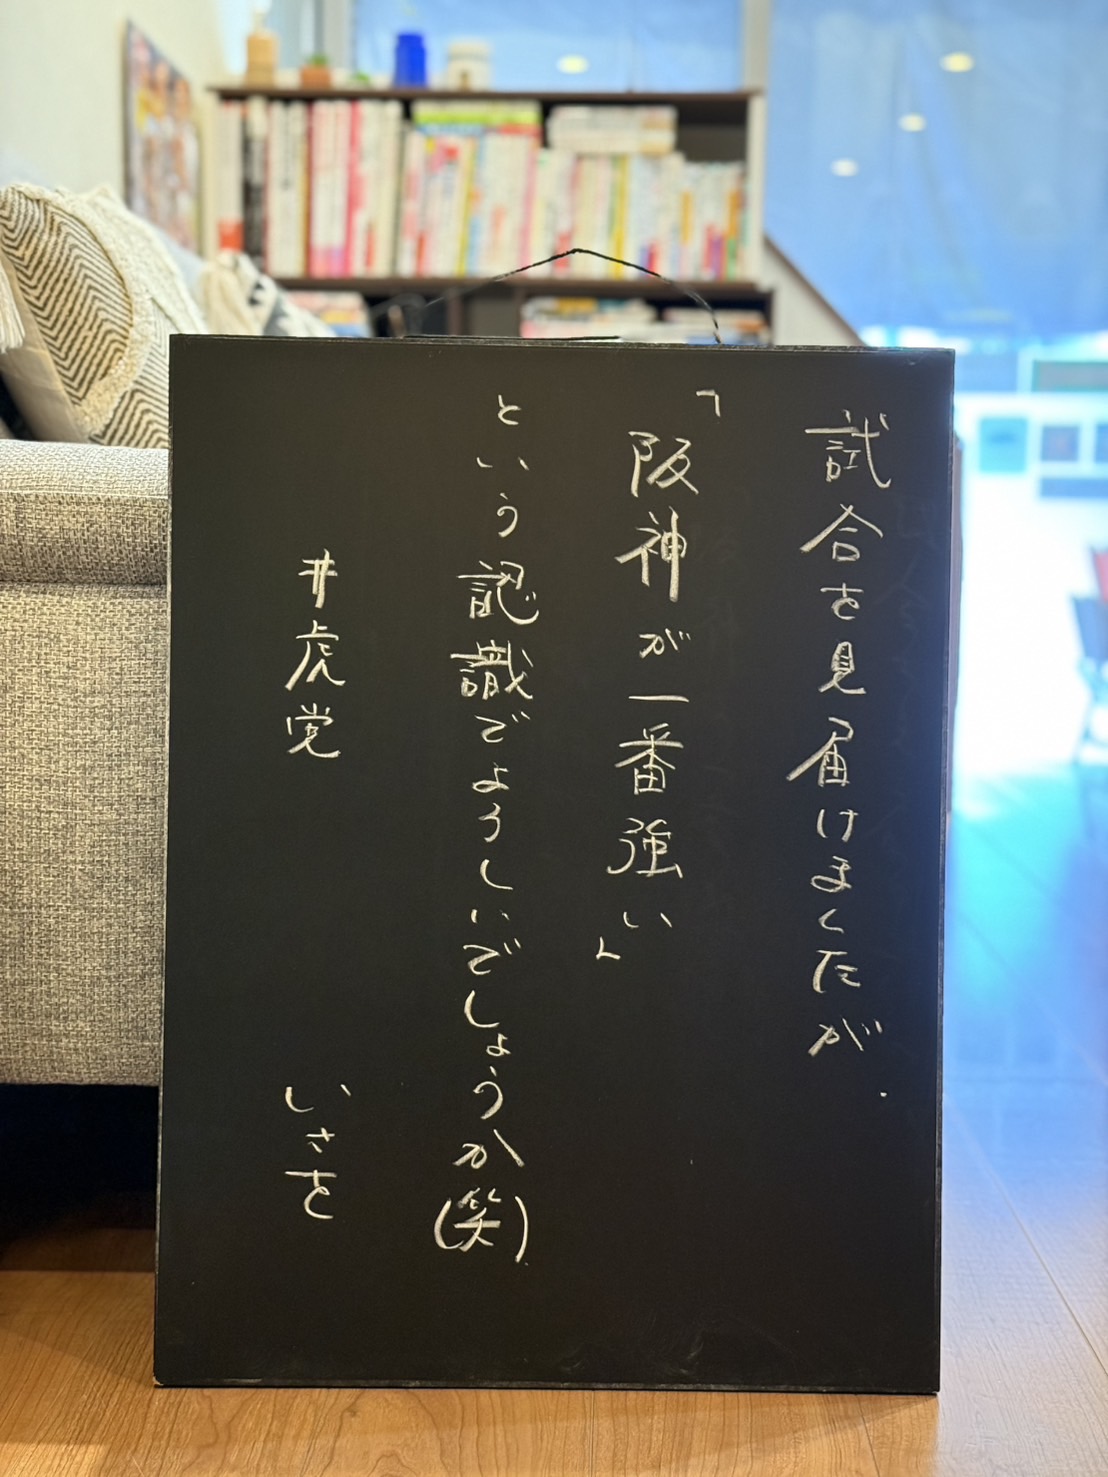 試合を見届けましたが、
「阪神が一番強い」
という認識でようしいでしょうか(笑)
#虎党
いさを